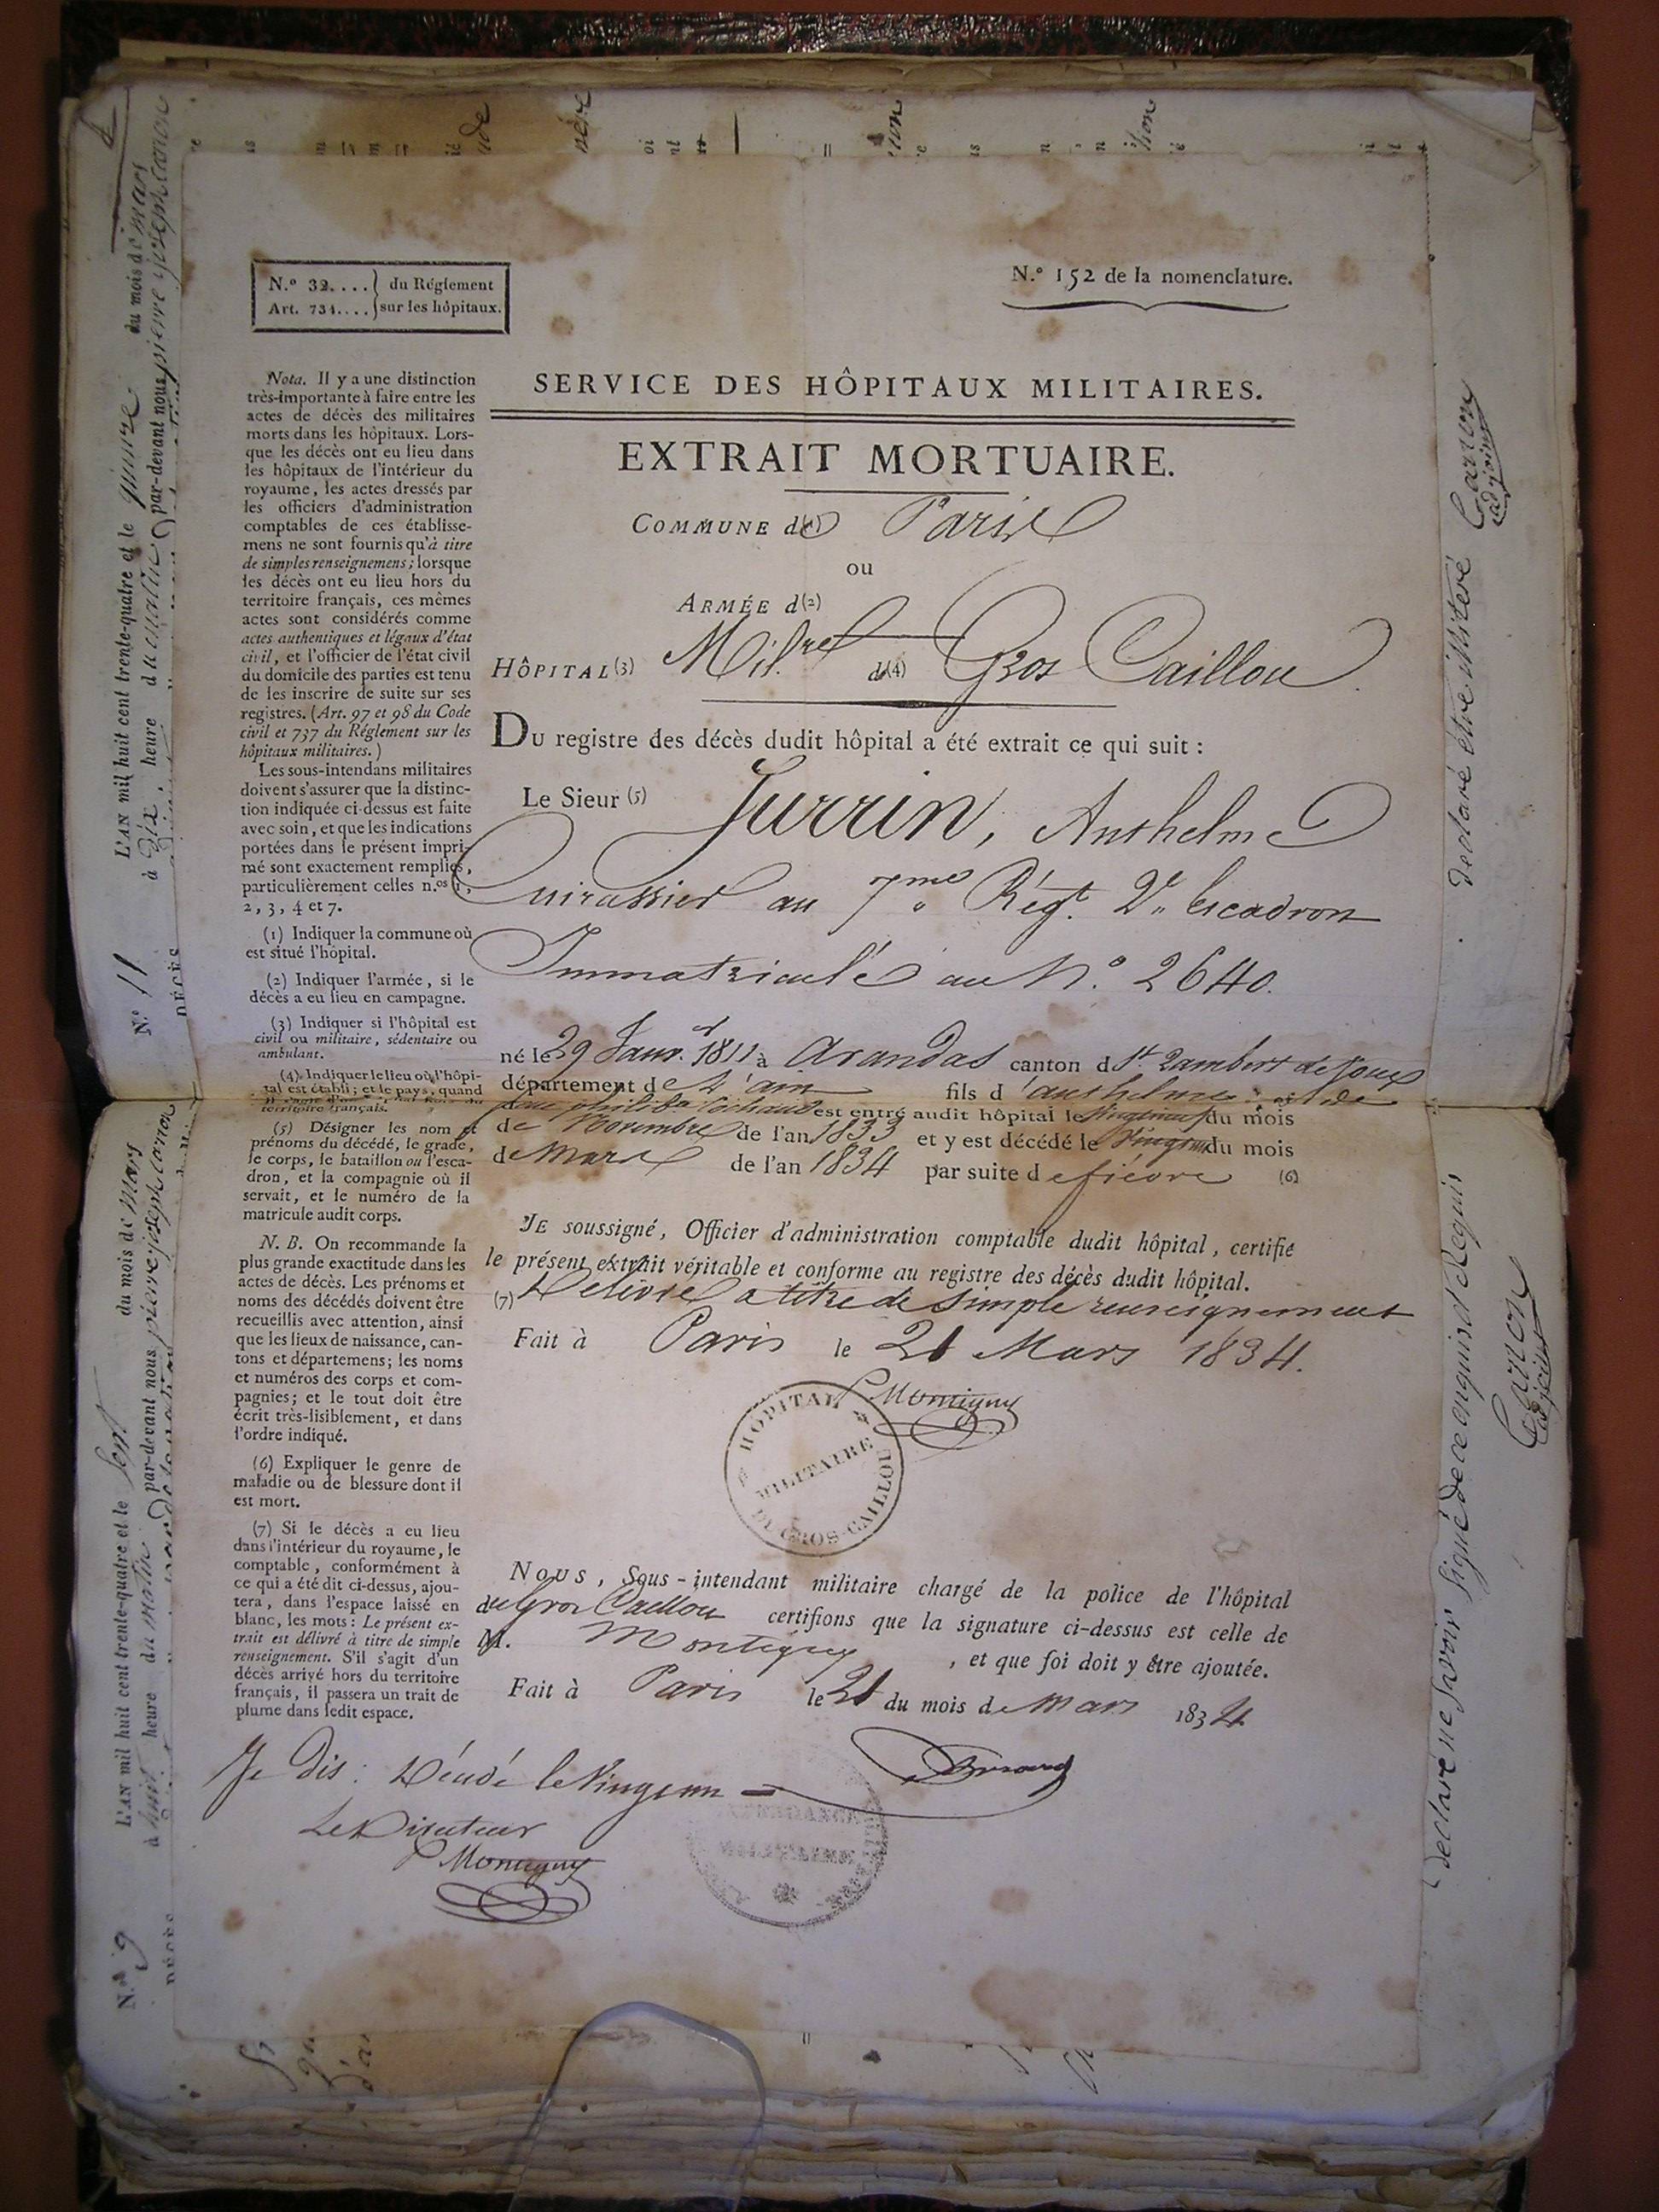 N.º 32.... du Réglement
Art. 731.... sur les hôpitaux.
N.º 152 de la nomenclature.
SERVICE DES HÔPITAUX MILITAIRES.
EXTRAIT MORTUAIRE.
COMMUNE de Paris
ou
ARMÉE d(2)
HÔPITAL(3) Mil.re d(4) Gros Caillou
DU registre des décès dudit hôpital a été extrait ce qui suit :
Le Sieur (5) Jurrin, Anthelme
Cuirassier au 7me Régt. 2e Escadron
Immatriculé au N.º 2640.
né le 29 Janv.r 1811 à Arandas canton d St Rambert de Joux
département de L'ain fils d'anthelme et de
est entré audit hôpital le du mois
de Novembre de l'an 1833 et y est décédé le du mois
de Mars de l'an 1834 par suite de fièvre (6)
JE soussigné, Officier d'administration comptable dudit hôpital, certifie
le présent extrait véritable et conforme au registre des décès dudit hôpital.
(7) Délivré a titre de simple renseignement
Fait à Paris le 21 Mars 1834.
Montigny
HÔPITAL MILITAIRE DU GROS-CAILLOU
NOUS, Sous-intendant militaire chargé de la police de l'hôpital
du Gros Caillou certifions que la signature ci-dessus est celle de
M. Montigny, et que foi doit y être ajoutée.
Fait à Paris le 21 du mois de Mars 1834
Je Dis : Décédé le Vingt un =
Le Directeur
Montigny
INTENDANCE MILITAIRE
Nota. Il y a une distinction
très-importante à faire entre les
actes de décès des militaires
morts dans les hôpitaux. Lors-
que les décès ont eu lieu dans
les hôpitaux de l'intérieur du
royaume, les actes dressés par
les officiers d'administration
comptables de ces établisse-
mens ne sont fournis qu'à titre
de simples renseignemens; lorsque
les décès ont eu lieu hors du
territoire français, ces mêmes
actes sont considérés comme
actes authentiques et légaux d'état
civil, et l'officier de l'état civil
du domicile des parties est tenu
de les inscrire de suite sur ses
registres. (Art. 97 et 98 du Code
civil et 737 du Réglement sur les
hôpitaux militaires.)
Les sous-intendans militaires
doivent s'assurer que la distinc-
tion indiquée ci-dessus est faite
avec soin, et que les indications
portées dans le présent impri-
mé sont exactement remplies,
particulièrement celles n.os 1,
2, 3, 4 et 7.
(1) Indiquer la commune où
est situé l'hôpital.
(2) Indiquer l'armée, si le
décès a eu lieu en campagne.
(3) Indiquer si l'hôpital est
civil ou militaire, sédentaire ou
ambulant.
(4) Indiquer le lieu où l'hôpi-
tal est établi; et le pays, quand
territoire français.
(5) Désigner les nom et
prénoms du décédé, le grade,
le corps, le bataillon ou l'esca-
dron, et la compagnie où il
servait, et le numéro de la
matricule audit corps.
N. B. On recommande la
plus grande exactitude dans les
actes de décès. Les prénoms et
noms des décédés doivent être
recueillis avec attention, ainsi
que les lieux de naissance, can-
tons et départemens; les noms
et numéros des corps et com-
pagnies; et le tout doit être
écrit très-lisiblement, et dans
l'ordre indiqué.
(6) Expliquer le genre de
maladie ou de blessure dont il
est mort.
(7) Si le décès a eu lieu
dans l'intérieur du royaume, le
comptable, conformément à
ce qui a été dit ci-dessus, ajou-
tera, dans l'espace laissé en
blanc, les mots : Le présent ex-
trait est délivré à titre de simple
renseignement. S'il s'agit d'un
décès arrivé hors du territoire
français, il passera un trait de
plume dans ledit espace.
N.º 11
DÉCÈS
L'AN mil huit cent trente-quatre et le quinze du mois de mars
à dix heure du matin par-devant nous pierre joseph carron
déclaré être illitéré
Carron
adjoint
N.º 9
DÉCÈS
L'AN mil huit cent trente-quatre et le sept du mois de Mars
à huit heure du matin par-devant nous pierre joseph carron
déclaré ne savoir signé de ce enquis et Requis
Carron
adjoint